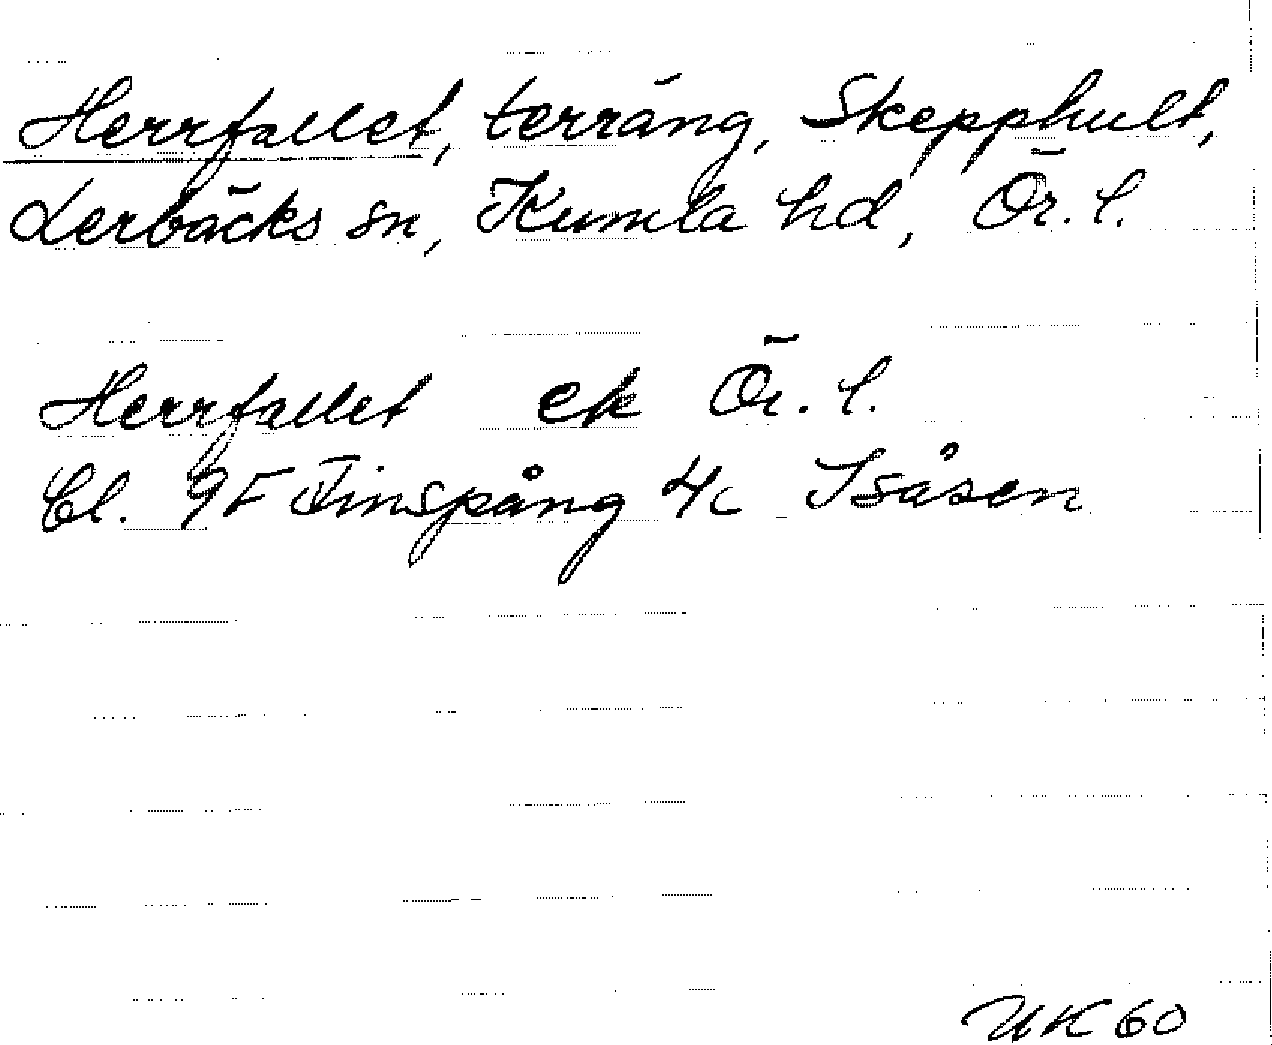 Herrfallet, terräng, Skepphult,
Lerbäcks sn, Kumla hd, Ör. l.
Herrfallet ek Ör. l.
Bl. 9F Finspång 4c Isåsen
UK 60